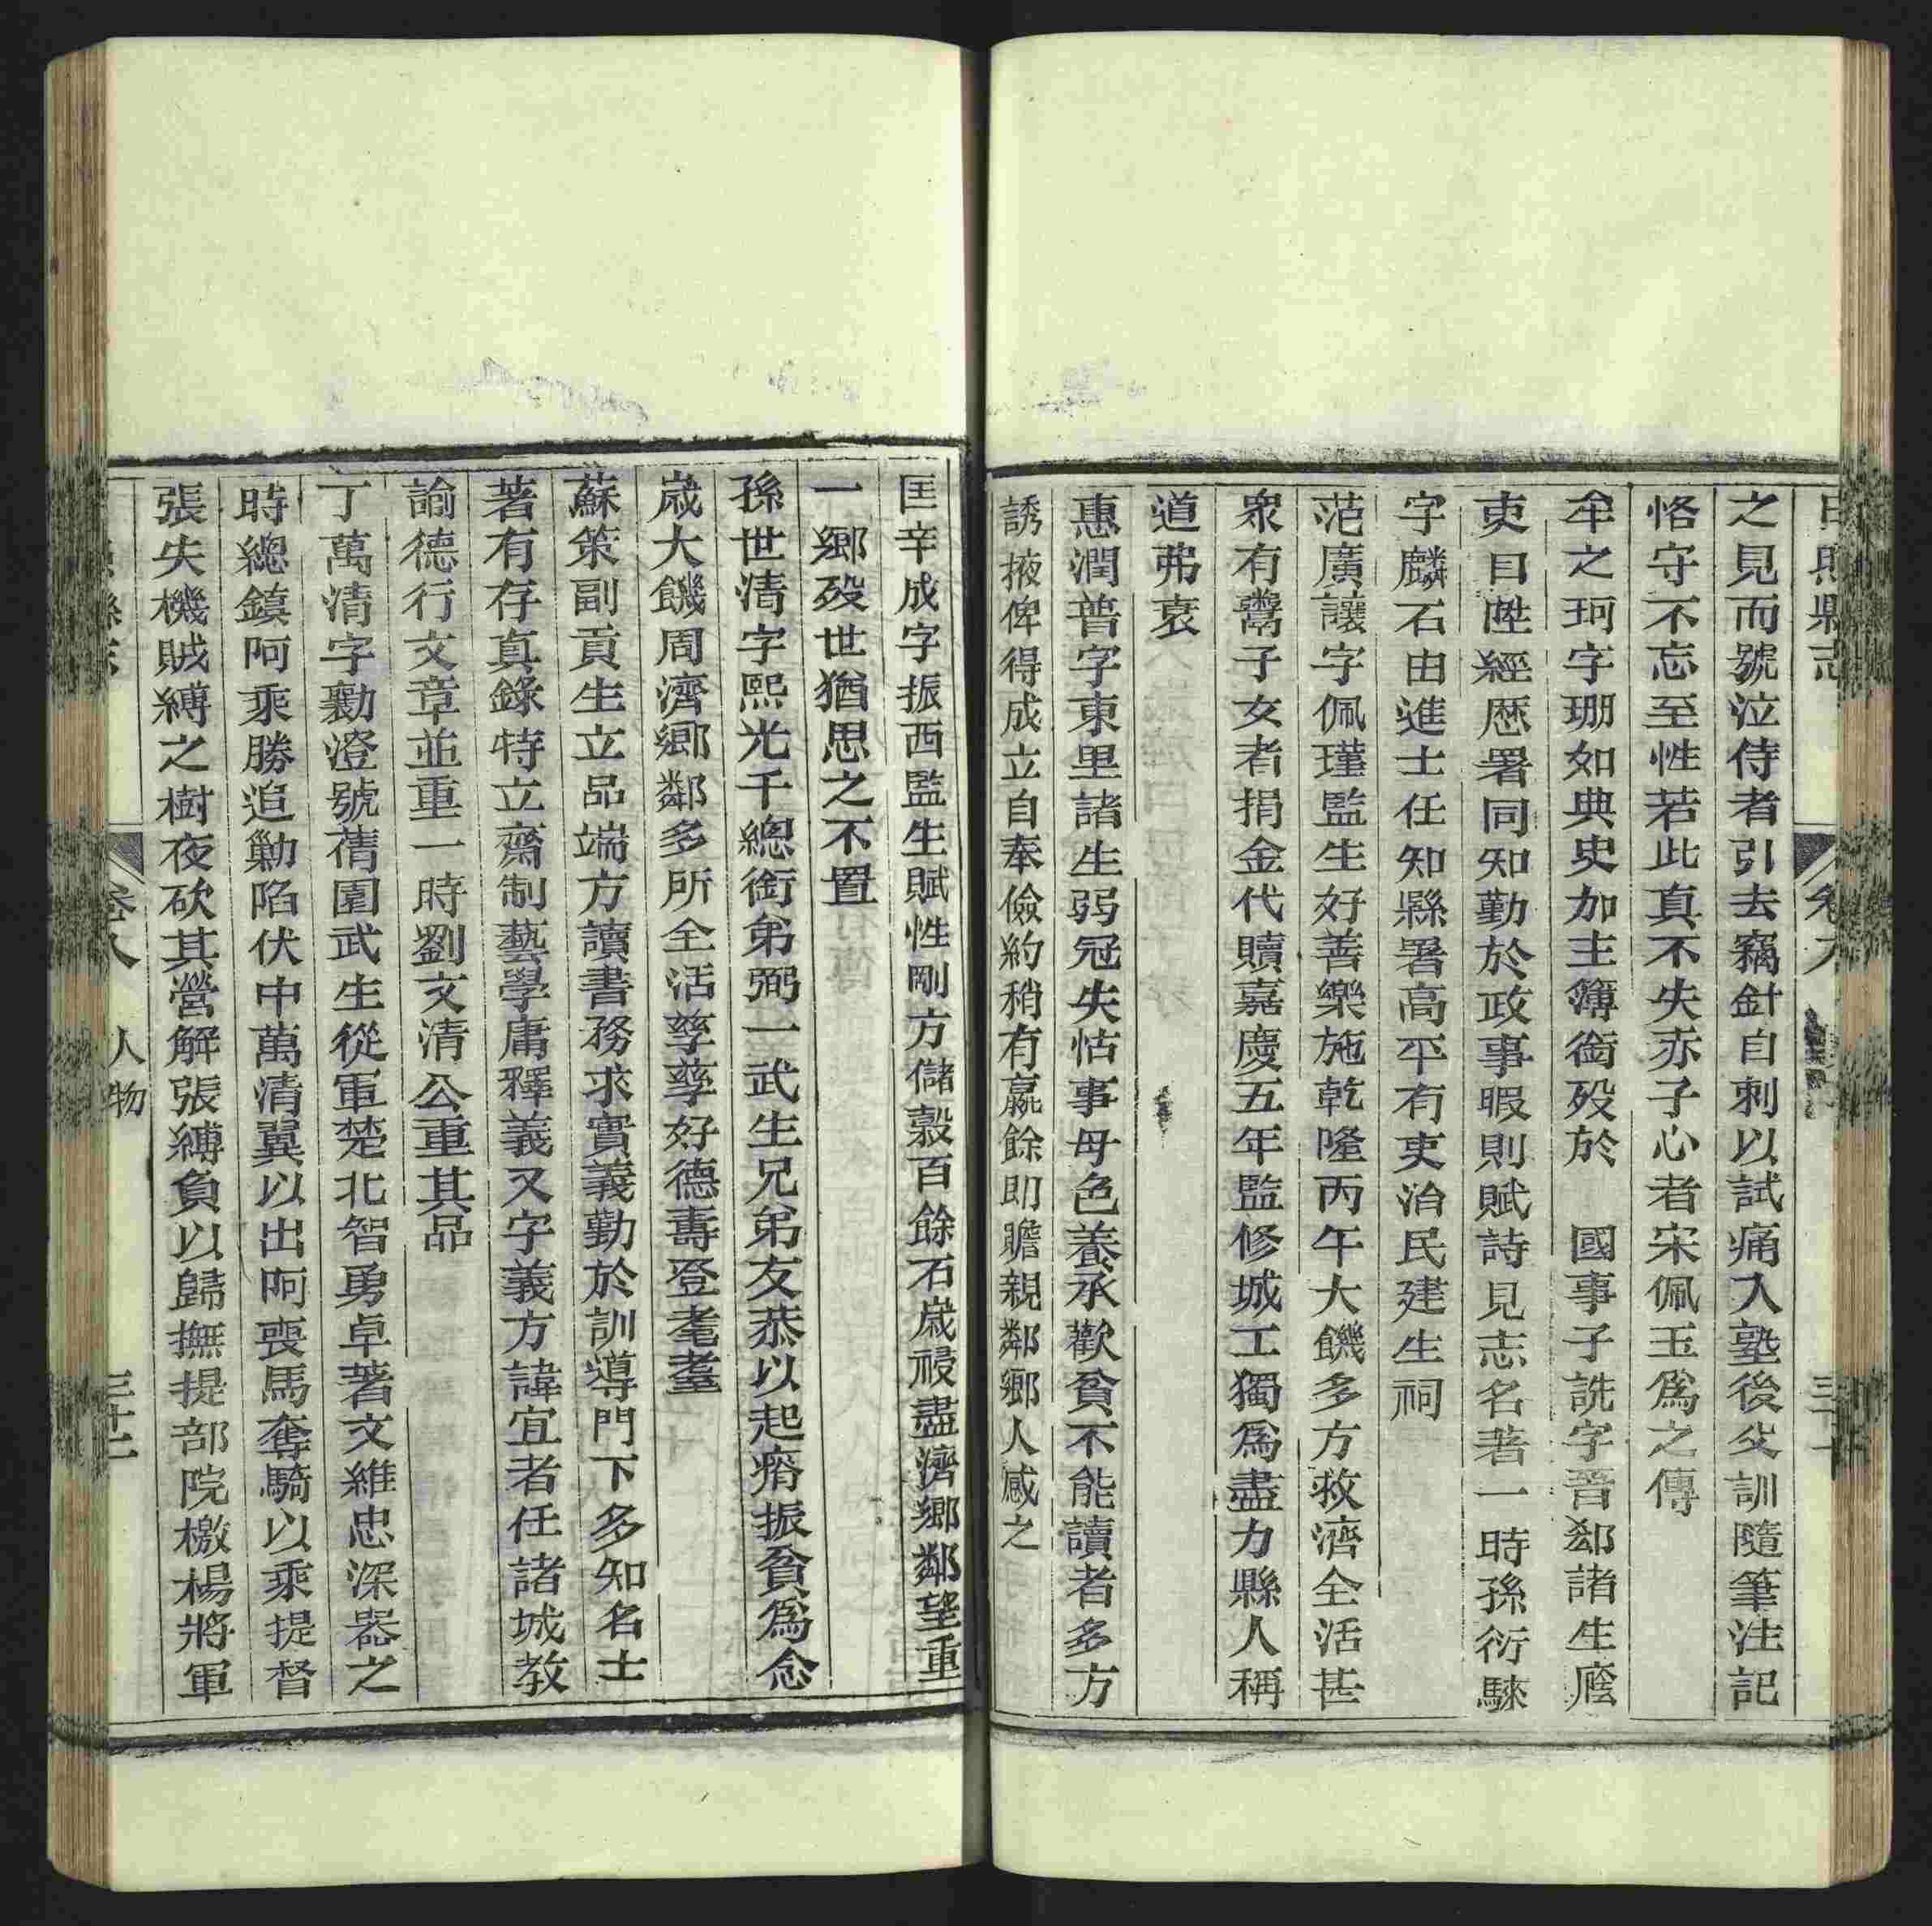 日照縣志
卷八
三十一
之見而號泣侍者引去竊針自刺以試痛入塾後父訓隨筆注記
恪守不忘至性若此真不失赤子心者宋佩玉為之傳
牟之珂字珊如典史加主簿銜歿於　國事子詵字晉郄諸生廕
吏目陞經歷署同知勤於政事暇則賦詩見志名著一時孫衍騋
字麟石由進士任知縣署高平有吏治民建生祠
范廣讓字佩瑾監生好善樂施乾隆丙午大饑多方救濟全活甚
衆有鬻子女者捐金代贖嘉慶五年監修城工獨為盡力縣人稱
道弗衰
惠潤普字東里諸生弱冠失怙事母色養承歡貧不能讀者多方
誘掖俾得成立自奉儉約稍有贏餘即贍親鄰鄉人感之
匡辛成字振西監生賦性剛方儲穀百餘石歲祲盡濟鄉鄰望重
一鄉歿世猶思之不置
孫世清字熙光千總銜弟弼一武生兄弟友恭以起瘠振貧為念
歲大饑周濟鄉鄰多所全活孳孳好德壽登耄耋
蘇策副貢生立品端方讀書務求實義勤於訓導門下多知名士
著有存真錄特立齋制藝學庸釋義又字義方諱宜者任諸城教
諭德行文章並重一時劉文清公重其品
丁萬清字勷澄號蒨圃武生從軍楚北智勇卓著文維忠深器之
時總鎮阿乘勝追勦陷伏中萬清翼以出阿喪馬奪騎以乘提督
張失機賊縛之樹夜砍其營解張縛負以歸撫提部院檄楊將軍
卷八
人物
三十二